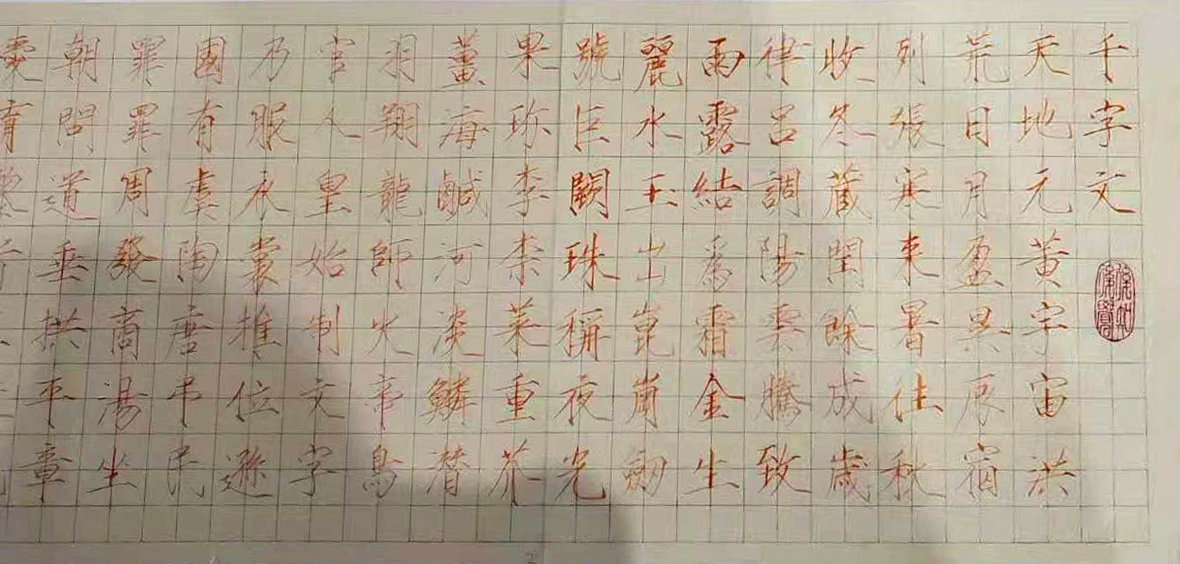 千字文
天地元黃宇宙洪
荒日月盈昃辰宿
列張寒來暑往秋
收冬藏閏餘成歲
律呂調陽雲騰致
雨露結爲霜金生
麗水玉出崑崗劒
號巨闕珠稱夜光
果珍李柰菜重芥
薑海鹹河淡鱗潛
羽翔龍師火帝鳥
官人皇始制文字
乃服衣裳推位遜
國有虞陶唐弔民
罪罪周發商湯坐
朝問道垂拱平章
愛育黎